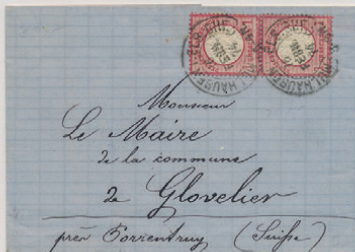 MÜLHAUSEN
Monsieur
Le Maire
de la commune
de Glovelier
près Porrentruy (Suisse)